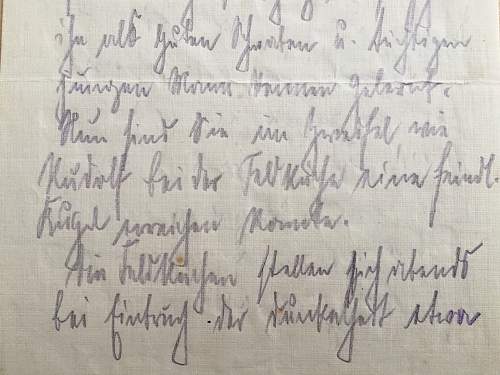 ihn als guten Schwaben u. tüchtigen
jungen Mann kennen gelernt.
Nun sind Sie im Zweifel, wie
Rudolf bei der Feldküche eine feindl.
Kugel erreichen konnte.
Die Feldküchen stellen sich abends
bei Einbruch der Dunkelheit etwa